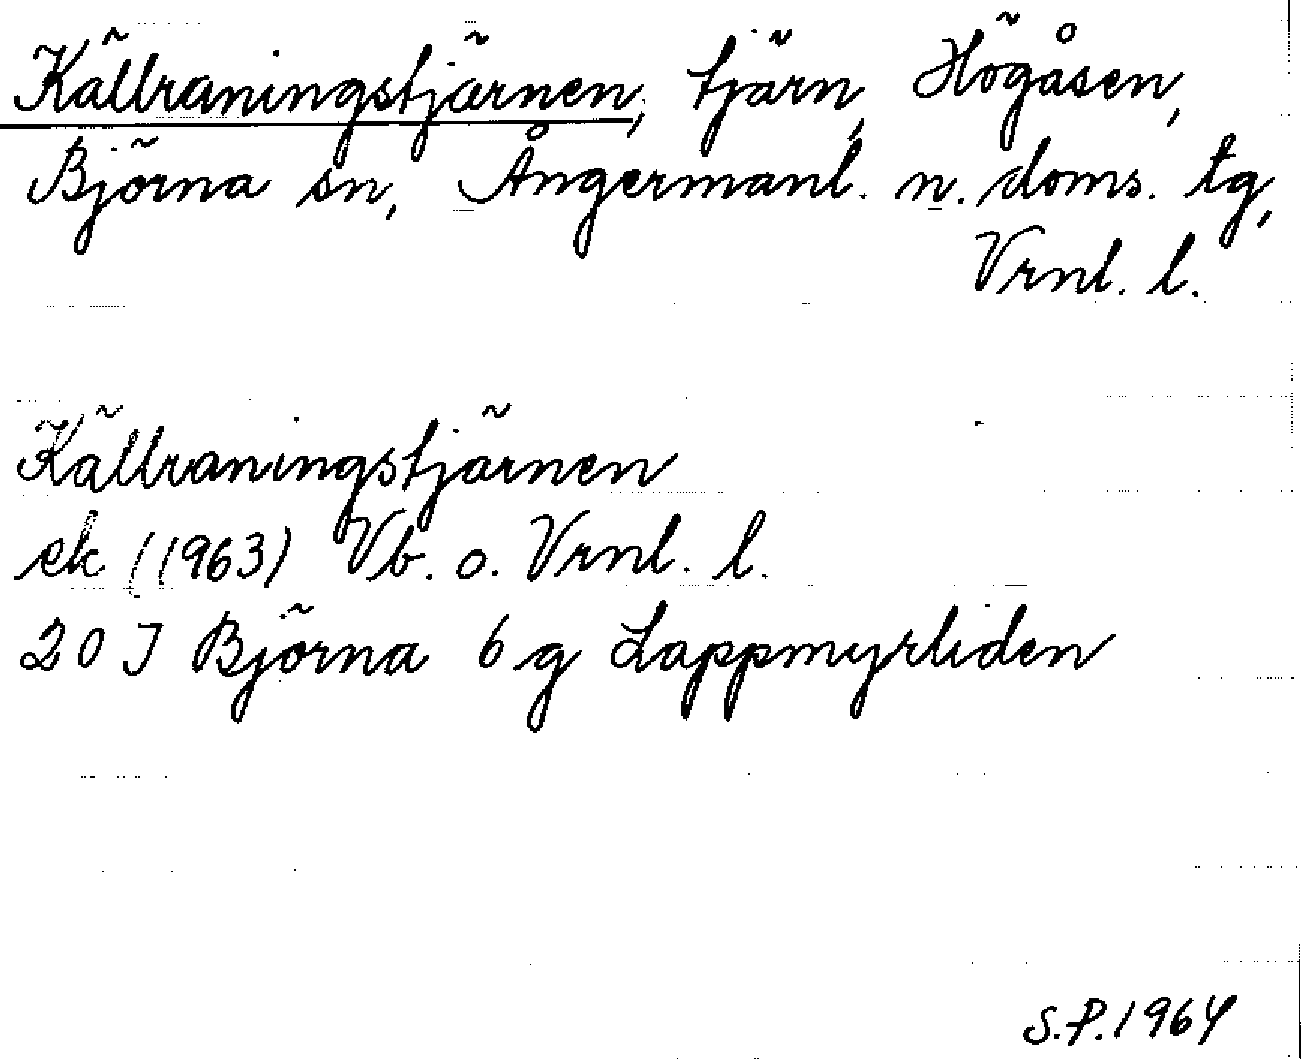 Källraningstjärnen, tjärn, Högåsen,
Björna sn, Ångermanl. n. doms. tg,
Vrnl. l.
Källraningstjärnen
ek (1963) Vb. o. Vrnl. l.
20 J Björna 6 g Lappmyrliden
S.P. 1964